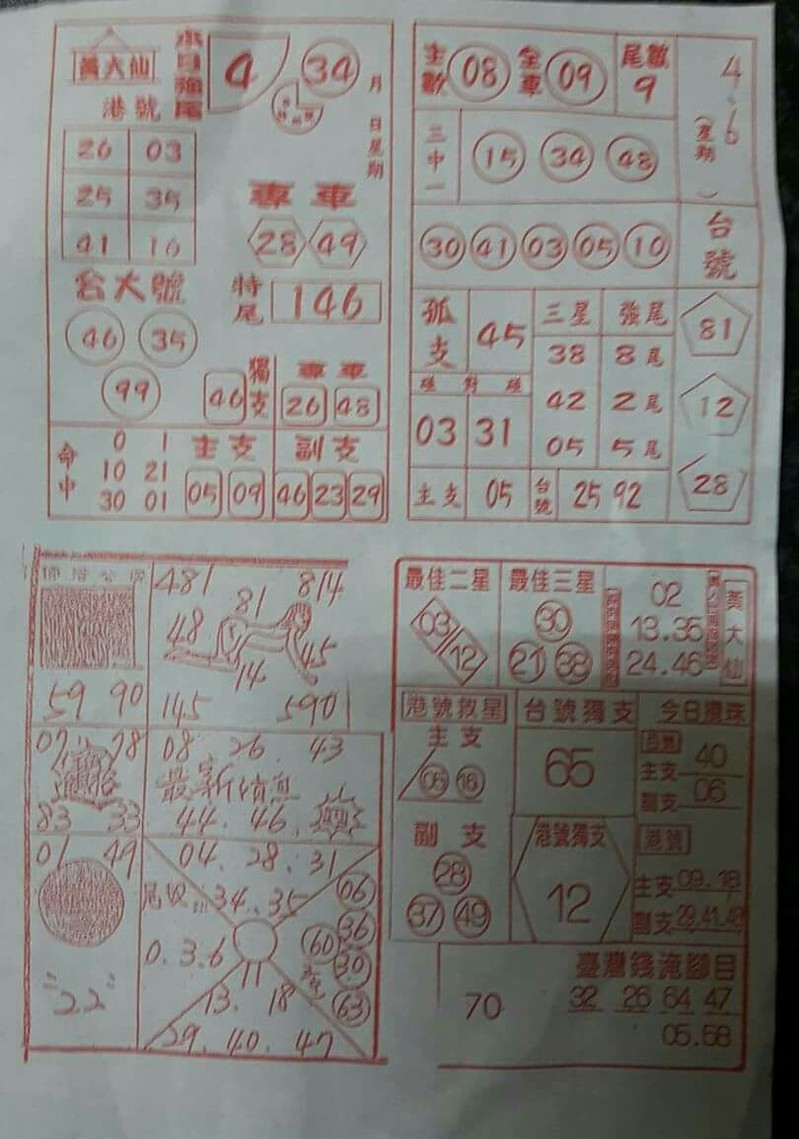 黃大仙
港號
本日強尾
4
34
月
日星期
26 03
25 35
41 16
專車
28 49
台大號
46 35
99
特尾 146
獨支 46
專車
26 48
命中
0 1
10 21
30 01
主支
05 09
副支
46 23 29
主數 08 全車 09 尾數 9
4、6
(星期 )
三中一 15 34 48
30 41 03 05 10
台號
81
12
28
孤支 45
三星 強尾
38 8尾
42 2尾
05 5尾
碰對碰
03 31
主支 05 台號 25 92
59 90
481 814
81
48
45
14
145 5901
07 78
83 33
08 26 43
最新消息
44. 46.
01 49
"22"
04. 28. 31
尾殺
34. 35
0. 3. 6
11
13. 18
29. 40. 47
06
36
60
30
63
最佳二星
03
12
最佳三星
30
21 38
02
13.35
24.46
黃大仙
港號救星
主支
05 16
副支
28
37 49
台號獨支
65
港號獨支
12
今日選珠
台號
主支 40
副支 06
港號
主支 09.18
副支 29.41.42
臺灣錢淹腳目
70
32 26 64 47
05.58